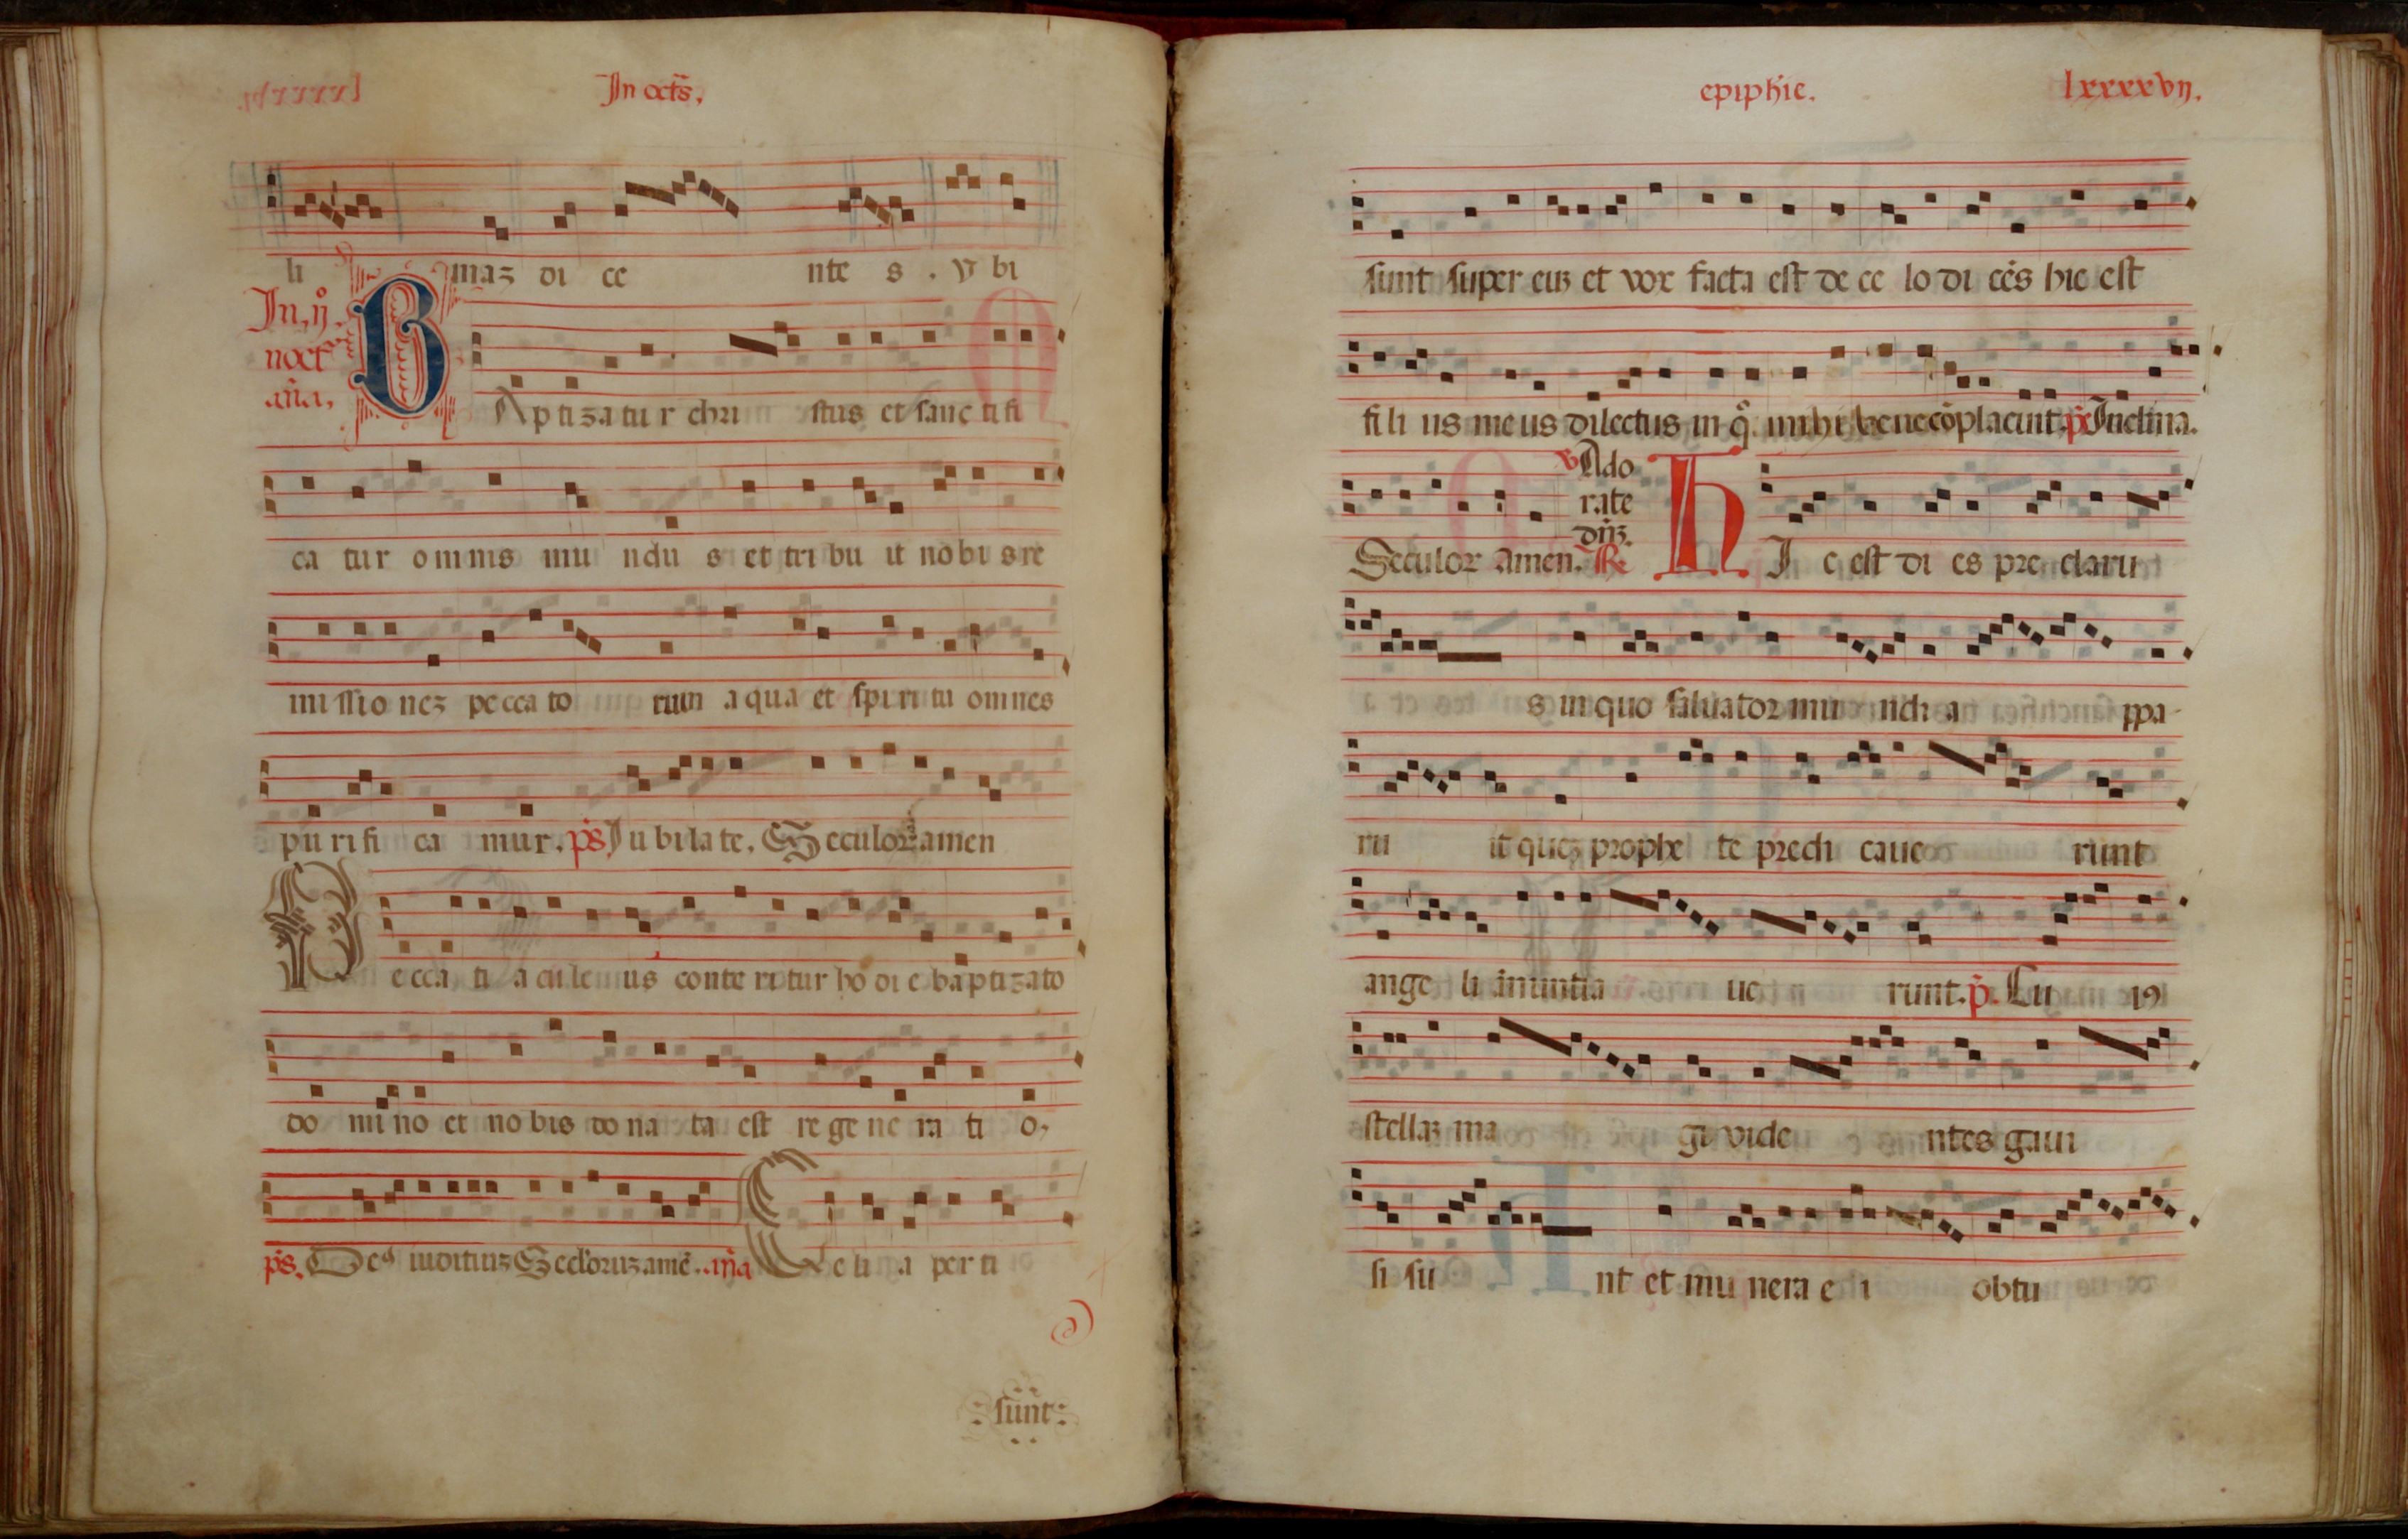 In octs.
li maz di ce nte s . V bi
In .ij.
noct
aña.
BAptizatur christus et sanctifi
catur omnis mundus et tribuit nobis re
missionez peccatorum aqua et spiritu omnes
purificamur. ps Jubilate. Seculor amen
Peccati aculeus conteritur hodie baptizato
domino et nobis donata est regeneratio.
ps. Deus iuditiuz Secloruz amē. aña Celi aperti
sunt
epiphie. lxxxxvij.
sunt super euz et vox facta est de celo dicēs hic est
filius meus dilectus in q° mihi bene cōplacuit. ps Inclina.
Seculor amen. V Adorate dñz. R HIc est dies preclaru
s in quo saluator mundi appa
ruit quez prophete predicaue runt
angeli ānuntiaue runt. p. Cuius
stellaz magi videntes gaui
si sunt et munera ei obtu